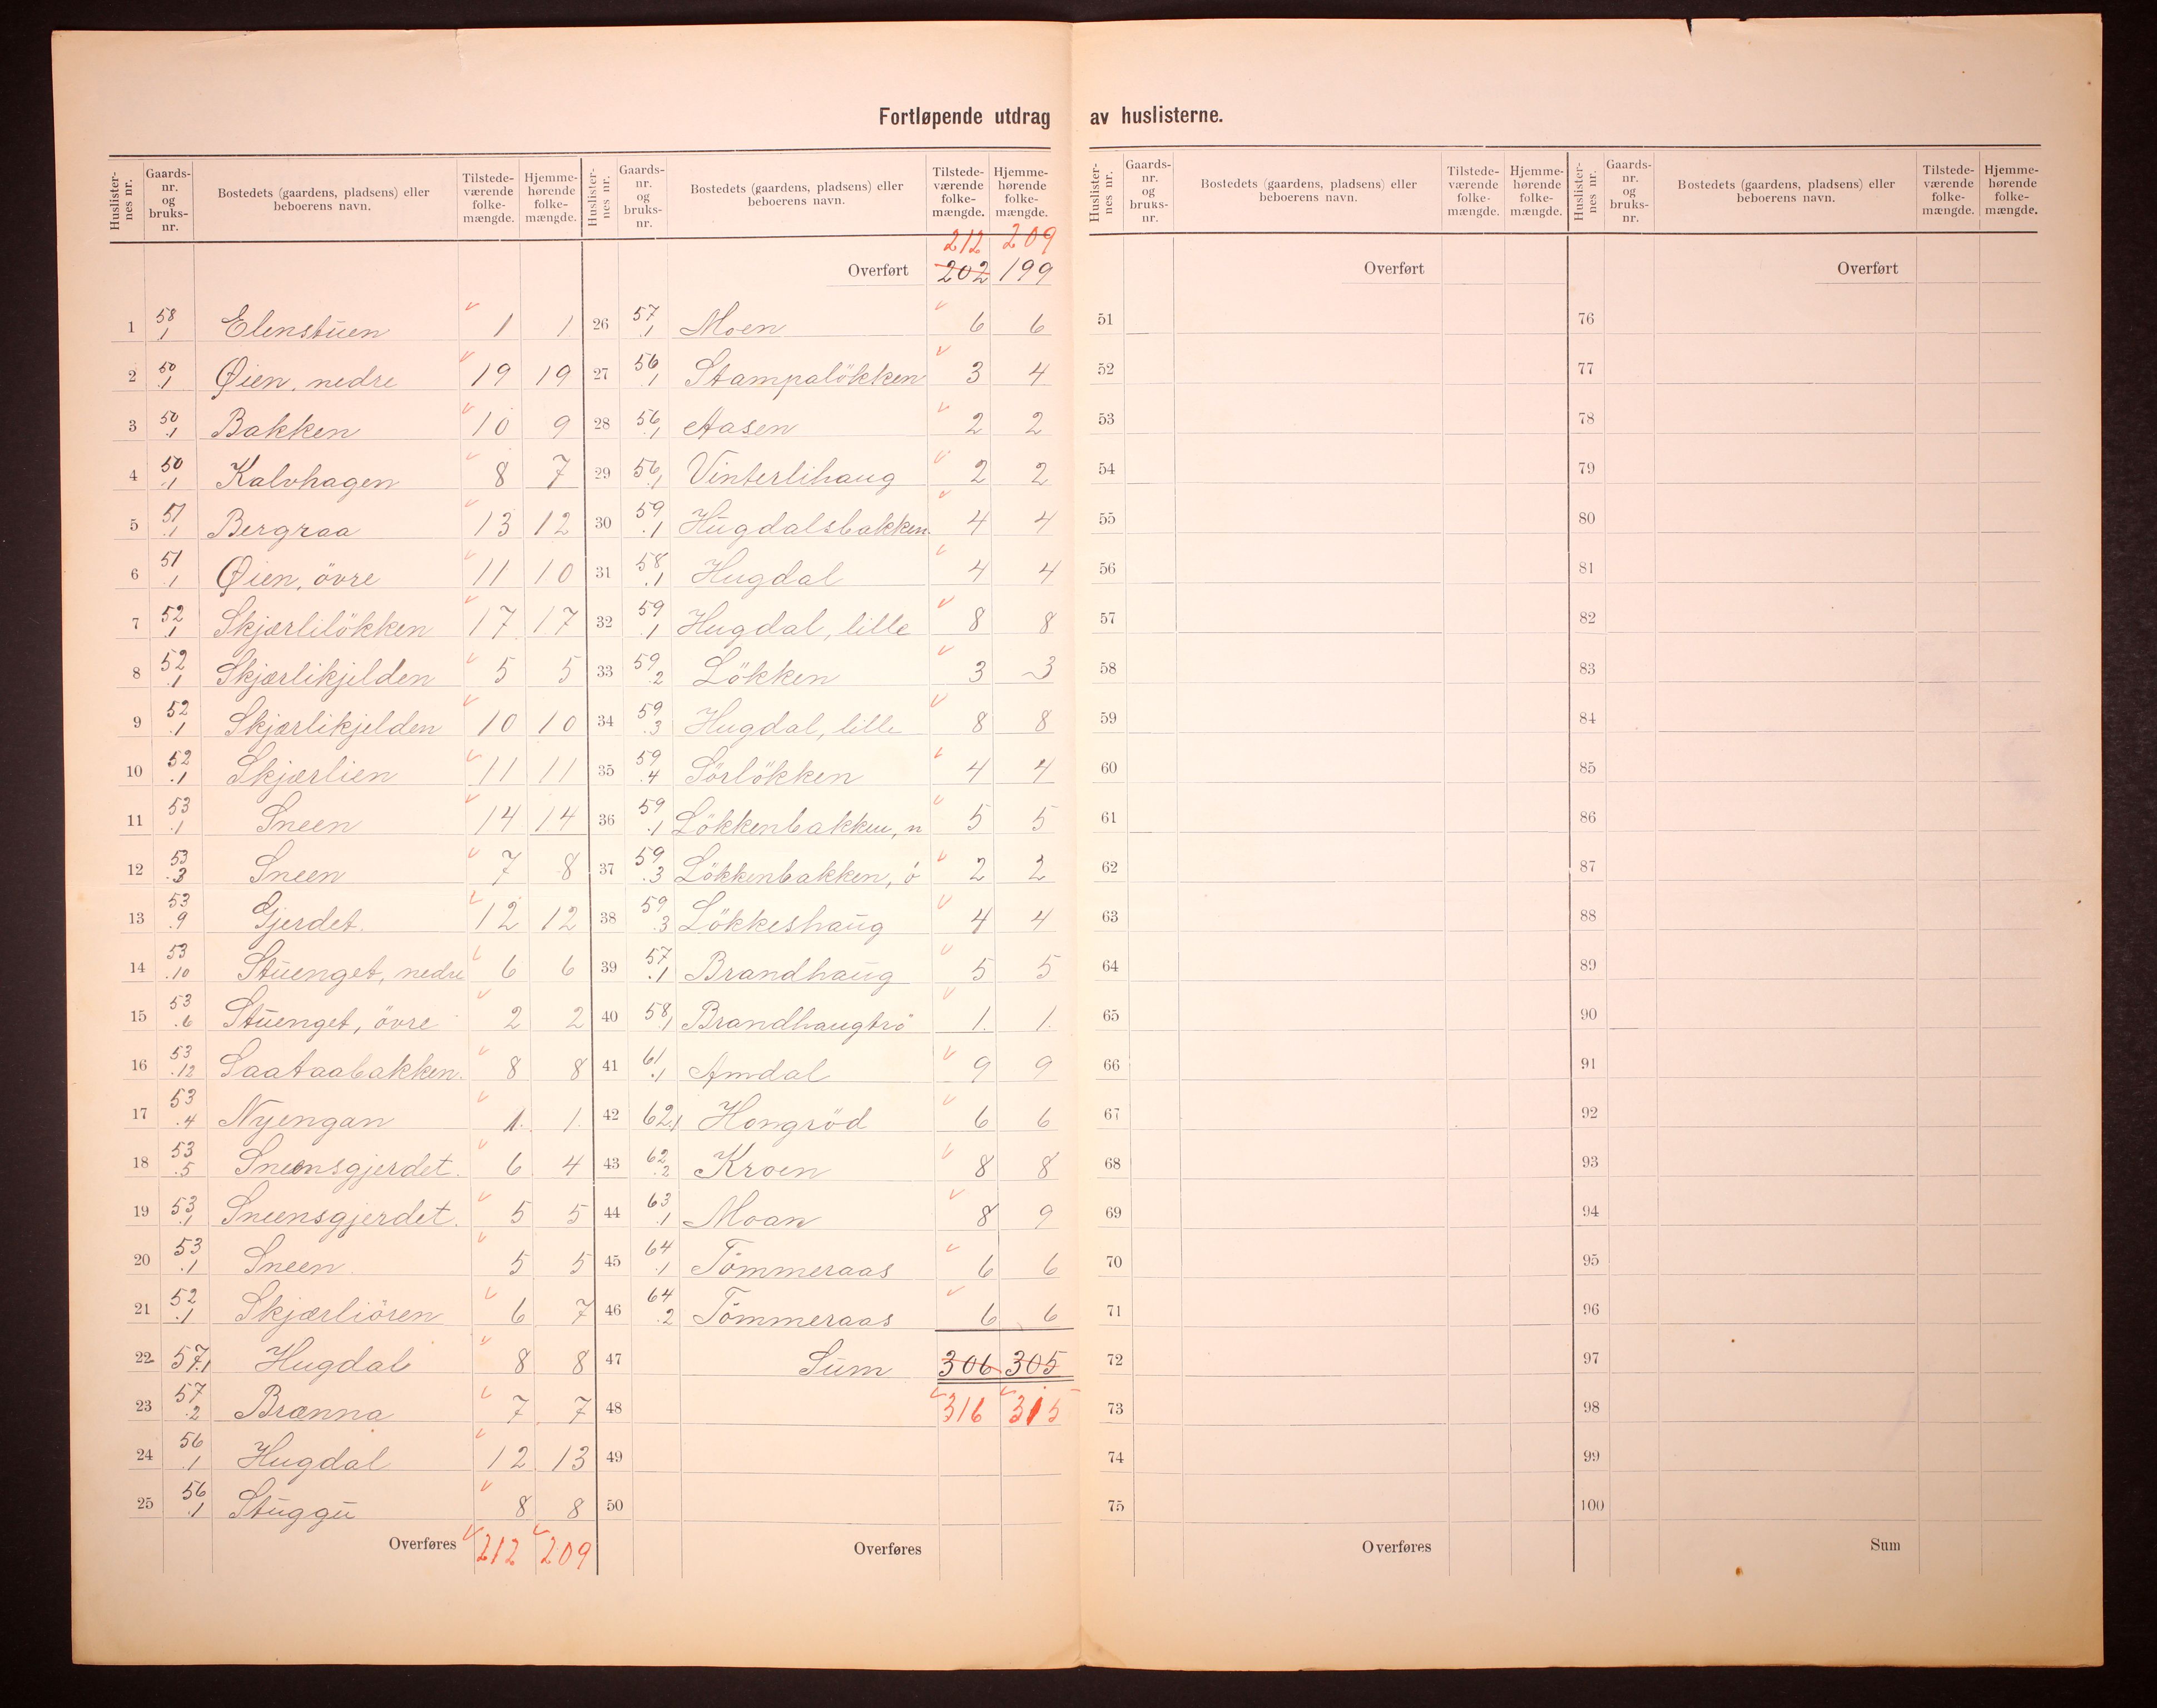 Fortløpende utdrag av huslisterne.
Huslister-nes nr. Gaards-nr. og bruks-nr. Bostedets (gaardens, pladsens) eller beboerens navn. Tilstede-værende folke-mængde. Hjemme-hørende folke-mængde.
1 58.1 Elenstuen 1 1
2 50.1 Øien, nedre 19 19
3 50.1 Bakken 10 9
4 50.1 Kalvhagen 8 7
5 51.1 Bergraa 13 12
6 51.1 Øien, övre 11 10
7 52.1 Skjærlilökken 17 17
8 52.1 Skjærlikjelden 5 5
9 52.1 Skjærlikjelden 10 10
10 52.1 Skjærlien 11 11
11 53.1 Sneen 14 14
12 53.3 Sneen 7 8
13 53.9 Gjerdet. 12 12
14 53.10 Stuenget, nedre 6 6
15 53.6 Stuenget, övre 2 2
16 53.12 Saataabakken. 8 8
17 53.4 Nyengan 1. 1.
18 53.5 Sneensgjerdet. 6 4
19 53.1 Sneensgjerdet. 5 5
20 53.1 Sneen. 5 5
21 52.1 Skjærliören 6 7
22 57.1 Hugdal 8 8
23 57.2 Brænna 7 7
24 56.1 Hugdal 12 13
25 56.1 Stuggu 8 8
Overføres 212 209
Huslister-nes nr. Gaards-nr. og bruks-nr. Bostedets (gaardens, pladsens) eller beboerens navn. Tilstede-værende folke-mængde. Hjemme-hørende folke-mængde.
212 209
Overført 202 199
26 57.1 Moen 6 6
27 56.1 Stampalökken 3 4
28 56.1 Aasen 2 2
29 56.1 Vinterlihaug 2 2
30 59.1 Hugdalsbakken. 4 4
31 58.1 Hugdal 4 4
32 59.1 Hugdal, lille 8 8
33 59.2 Lökken 3 3
34 59.3 Hugdal, lille 8 8
35 59.4 Sörlökken 4 4
36 59.1 Lökkenbakken, n 5 5
37 59.3 Lökkenbakken, ö 2 2
38 59.3 Lökkeshaug 4 4
39 57.1 Brandhaug 5 5
40 58.1 Brandhaugtrö 1. 1.
41 61.1 Amdal 9 9
42 62.1 Hongröd 6 6
43 62.2 Kroen 8 8
44 63.1 Moan 8 9
45 64.1 Tömmeraas 6 6
46 64.2 Tömmeraas 6 6
47 Sum 306 305
48 316 315
49
50
Overføres
Huslister-nes nr. Gaards-nr. og bruks-nr. Bostedets (gaardens, pladsens) eller beboerens navn. Tilstede-værende folke-mængde. Hjemme-hørende folke-mængde.
Overført
51
52
53
54
55
56
57
58
59
60
61
62
63
64
65
66
67
68
69
70
71
72
73
74
75
Overføres
Huslister-nes nr. Gaards-nr. og bruks-nr. Bostedets (gaardens, pladsens) eller beboerens navn. Tilstede-værende folke-mængde. Hjemme-hørende folke-mængde.
Overført
76
77
78
79
80
81
82
83
84
85
86
87
88
89
90
91
92
93
94
95
96
97
98
99
100
Sum